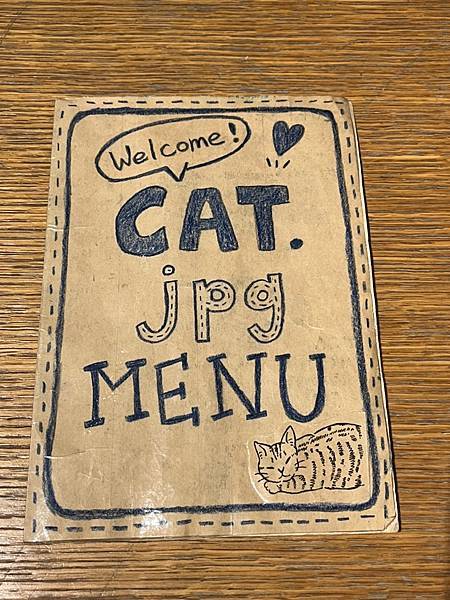 Welcome!
CAT.
jpg
MENU